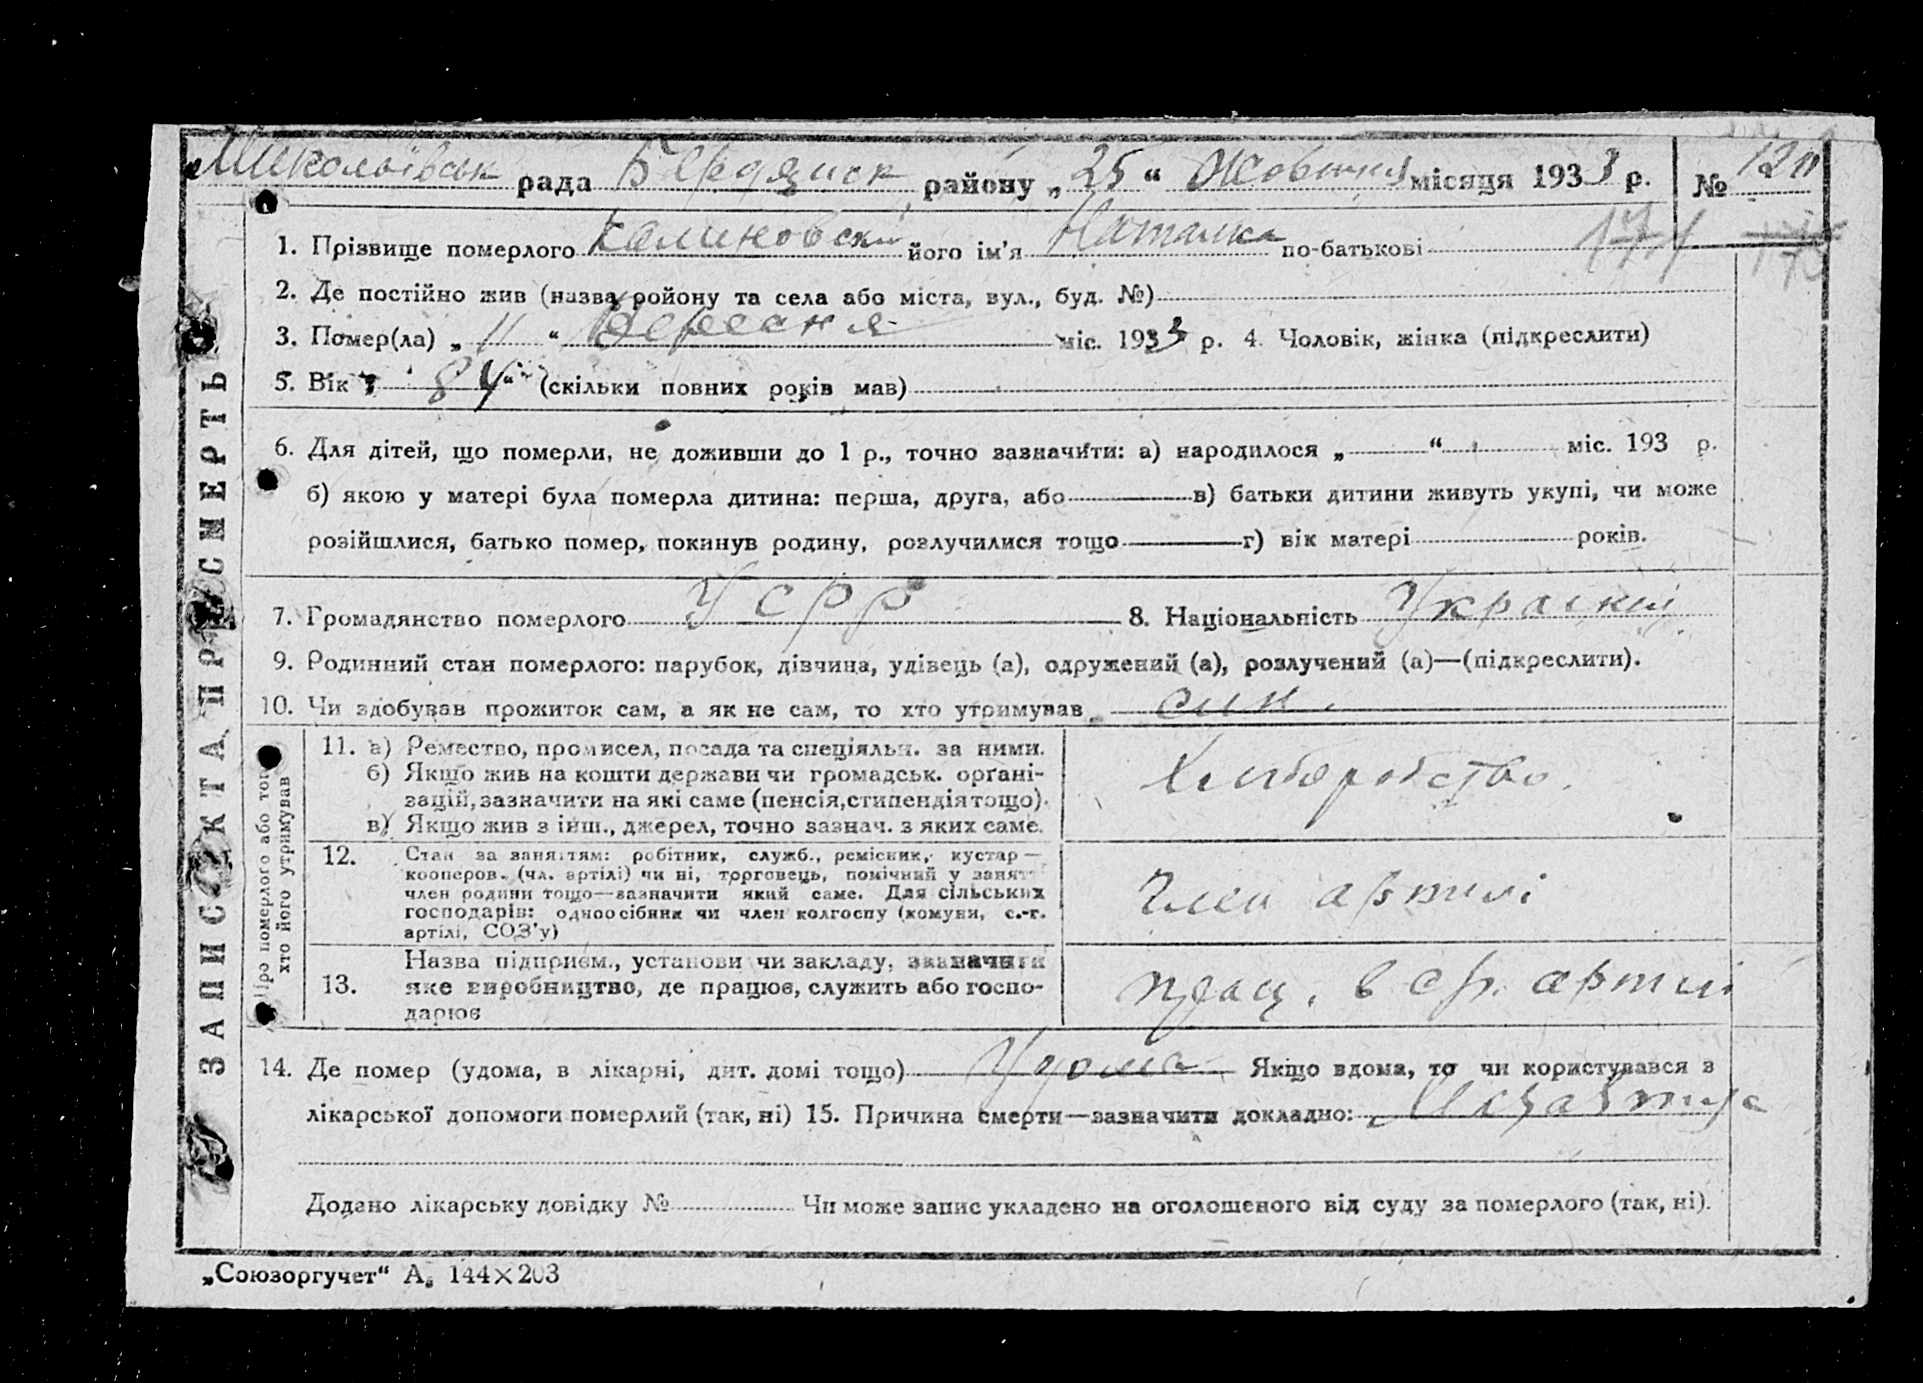 Миколаївськ рада Бердянськ району „25“ Жовтня місяця 1933 р. № 120
1. Прізвище померлого Калиновский його ім'я Наталка по-батькові 171
2. Де постійно жив (назва району та села або міста, вул., буд. №)
3. Помер(ла) „11“ Вересня міс. 1933 р. 4. Чоловік, жінка (підкреслити)
5. Вік 84 (скільки повних років мав)
6. Для дітей, що померли, не доживши до 1 р., точно зазначити: а) народилося „ “ міс. 193 р.
б) якою у матері була померла дитина: перша, друга, або в) батьки дитини живуть укупі, чи може
розійшлися, батько помер, покинув родину, розлучилися тощо г) вік матері років.
7. Громадянство померлого УСРР 8. Національність
9. Родинний стан померлого: парубок, дівчина, удівець (а), одружений (а), розлучений (а)—(підкреслити).
10. Чи здобував прожиток сам, а як не сам, то хто утримував син.
ЗАПИСКА ПРО СМЕРТЬ
Про померлого або того, хто його утримував
11. а) Ремество, промисел, посада та спеціяльн. за ними.
б) Якщо жив на кошти держави чи громадськ. орґані-
зацій, зазначити на які саме (пенсія, стипендія тощо).
в) Якщо жив з інш., джерел, точно зазнач. з яких саме.
Хліборобство.
12. Стан за заняттям: робітник, служб., ремісник, кустар—
кооперов. (чл. артілі) чи ні, торговець, помічний у занят.
член родини тощо—зазначити який саме. Для сільських
господарів: одноосібник чи член колгоспу (комуни, с.-г.
артілі, СОЗ'у)
Член артілі
13. Назва підприєм., установи чи закладу, зазначити
яке виробництво, де працює, служить або госпо-
дарює
прац. в ср. артілі
14. Де помер (удома, в лікарні, дит. домі тощо) Удома Якщо вдома, то чи користувався з
лікарської допомоги померлий (так, ні) 15. Причина смерти—зазначити докладно:
Додано лікарську довідку № Чи може запис укладено на оголошеного від суду за померлого (так, ні).
„Союзоргучет“ А₅ 144×203